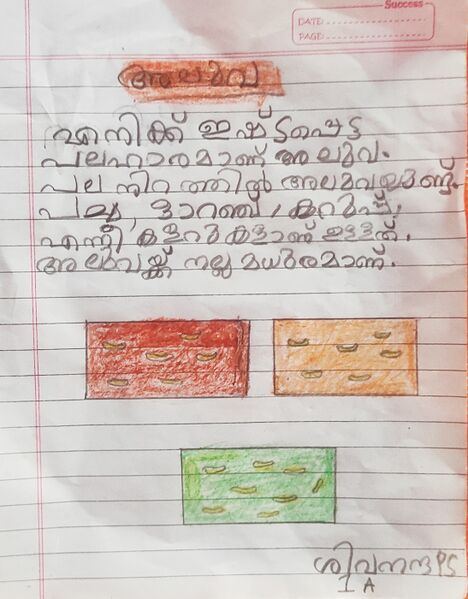 Success
DATE:
PAGE:
അലുവ
എനിക്ക് ഇഷ്ടപ്പെട്ട
പലഹാരമാണ് അലുവ.
പല നിറത്തിൽ അലുവയുണ്ട്.
പച്ച, ഓറഞ്ച്, കറുപ്പ്,
എന്നീ കളറുകളാണ് ഉള്ളത്.
അലുവയ്ക്ക് നല്ല മധുരമാണ്.
ശിവനന്ദ PS
I A